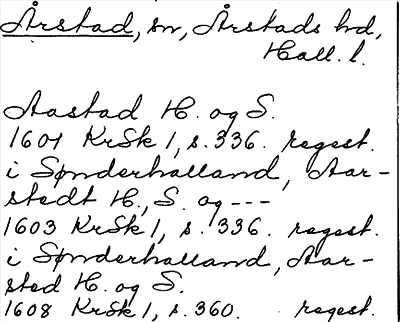 Årstad, sn, Årstads hd,
Hall. l.
Aastad H. og S.
1601 KrSk 1, s. 336. regest.
i Sønderhalland, Aar-
stedt H., S. og ---
1603 KrSk 1, s. 336. regest.
i Sønderhalland, Aar-
sted H. og S.
1608 KrSk 1, s. 360. regest.